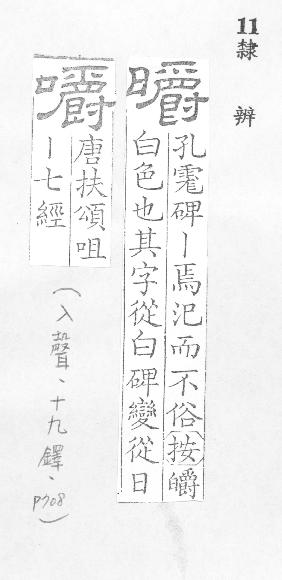 11隸辨
㬭
孔碑｜焉汜而不俗按皭
白色也其字從白碑變從日
嚼
唐扶頌咀
｜七經
（入聲、十九鐸、P708）